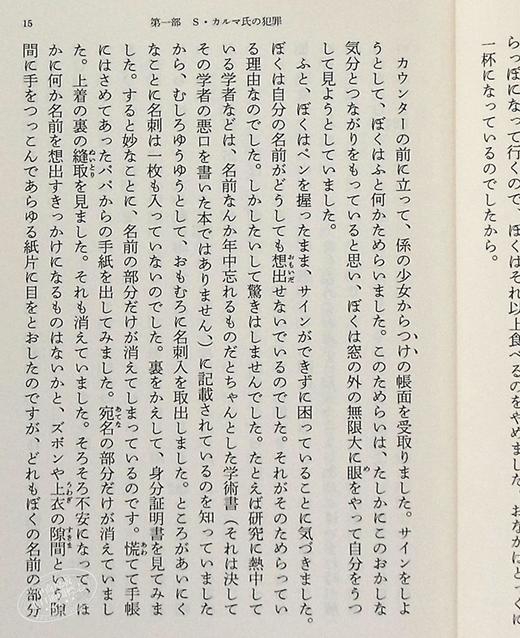 らっぽになって行くので、ぼくはそれ以上食べるのをやめました。おなかはとっくに
一杯になっているのでしたから。
15　第一部　S・カルマ氏の犯罪
カウンターの前に立って、係の少女からつけの帳面を受取りました。サインをしよ
うとして、ぼくはふと何かためらいました。このためらいは、たしかにこのおかしな
気分とつながりをもっていると思い、ぼくは窓の外の無限大に眼をやって自分をうつ
して見ようとしていました。
ふと、ぼくはペンを握ったまま、サインができずに困っていることに気づきました。
ぼくは自分の名前がどうしても想出せないでいるのでした。それがそのためらってい
る理由なのでした。しかしたいして驚きはしませんでした。たとえば研究に熱中して
いる学者などは、名前なんか年中忘れるものだとちゃんとした学術書（それは決して
その学者の悪口を書いた本ではありません）に記載されているのを知っていました
から、むしろゆうゆうとして、おもむろに名刺入を取出しました。ところがあいにく
なことに名刺は一枚も入っていないのでした。裏をかえして、身分証明書を見てみま
した。すると妙なことに、名前の部分だけが消えてしまっているのです。慌てて手帳
にはさめてあったパパからの手紙を出してみました。宛名の部分だけが消えていまし
た。上着の裏の縫取を見ました。それも消えていました。そろそろ不安になって、ほ
かに何か名前を想出すきっかけになるものはないかと、ズボンや上衣の隙間という隙
間に手をつっこんであらゆる紙片に目をとおしたのですが、どれもぼくの名前の部分